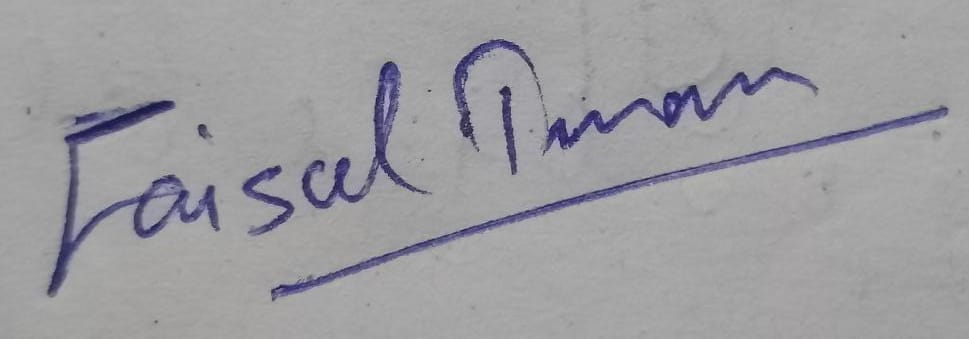 Faisal Iman